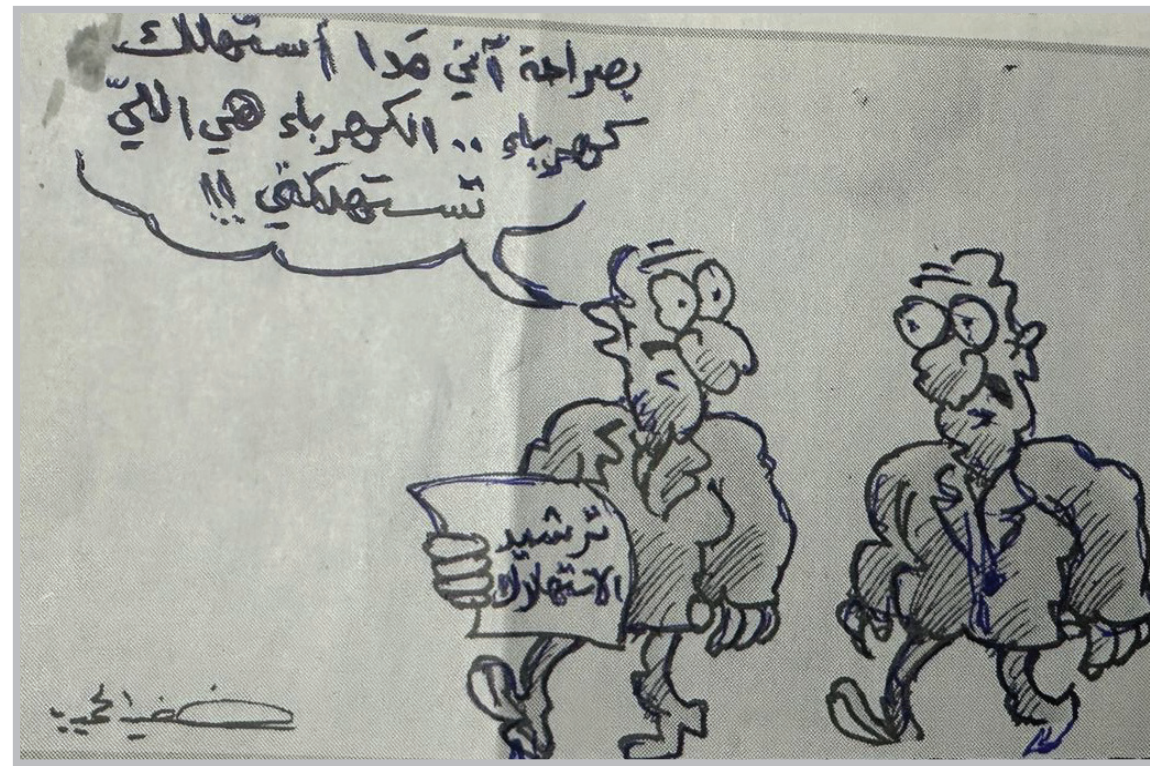 بصراحة آني مدا أستهلك
كهرباء .. الكهرباء هي اللّي
تستهلكني !!!
ترشيد
الاستهلاك